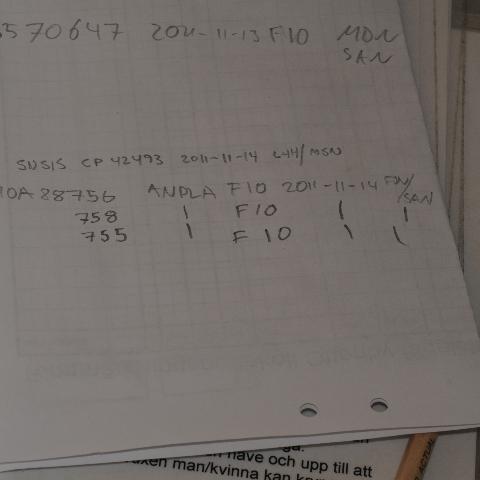 570647 2011-11-13 F10 MDN
SAN
SNSIS CP 42493 2011-11-14 L44/MSN
10A 28756 ANPLA F10 2011-11-14 FDN/
/SAN
758 | F10 | |
755 | F10 | |
nave och upp till att
man/kvinna kan